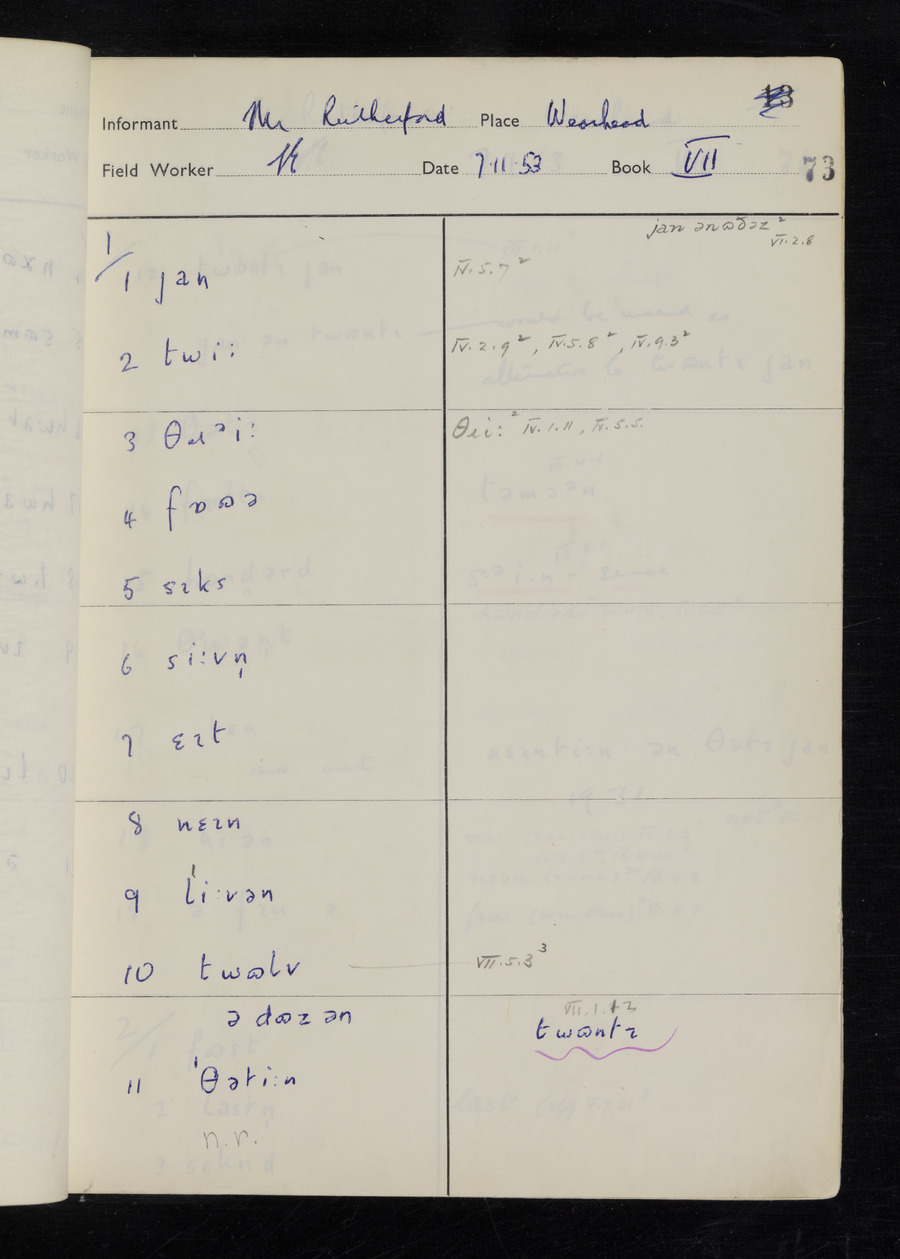 Informant Mr Rutherford Place Wearhead
Field Worker Date 7.11.53 Book VII
73
1/
1 jan
2 twiː
3 θɹᵊiː
4 fɒʊə
5 sɪks
6 siːvn̩
7 ɛɪt
8 nɛɪn
9 ˈliːvən
10 twɷlv
ə dɷzən
11 ˈθətiːn
n.r.
jan ənɷðəz² VI.2.8
IV.5.7²
IV.2.9², IV.5.8², IV.9.3²
θɹiː² IV.1.11, IV.5.5.
VII.5.3³
VII.1.12
twɷntɪ